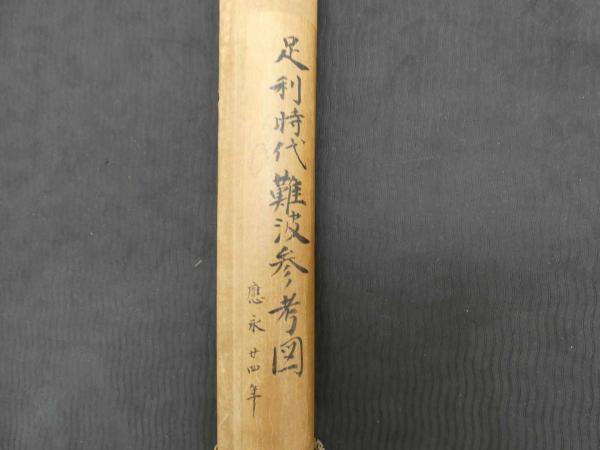 足利時代難波参考図
應永廿四年